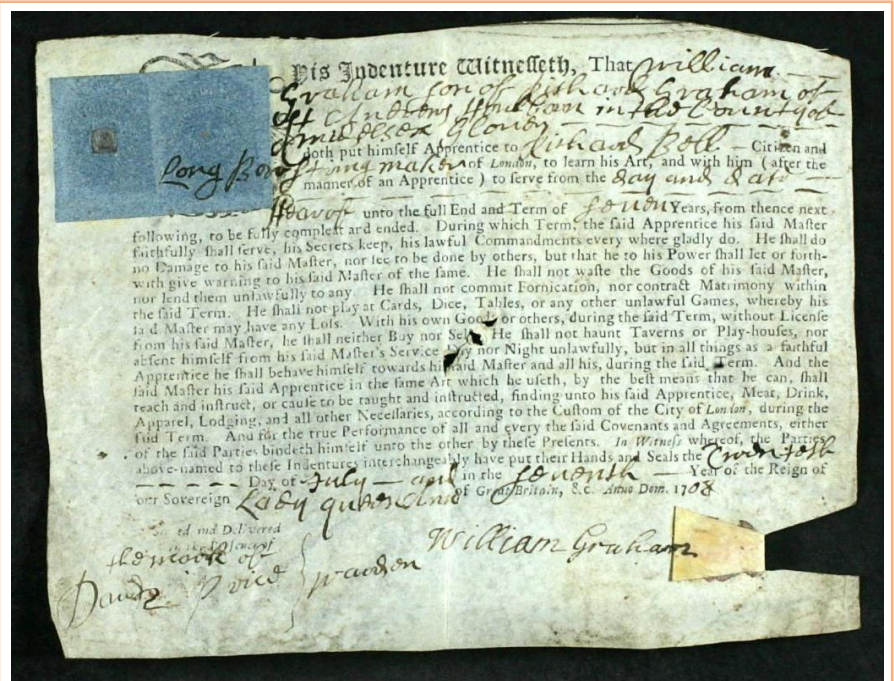 his Indenture Witnesseth, That William
Graham son of Richard Graham of
St Andrews in the County of
Glover
doth put himself Apprentice to Richard Bell — Citizen and
Long Bow string maker of London, to learn his Art, and with him (after the
manner of an Apprentice) to serve from the day and date
hereof unto the full End and Term of seven Years, from thence next
following, to be fully compleat and ended. During which Term, the said Apprentice his said Master
faithfully shall serve, his Secrets keep, his lawful Commandments every where gladly do. He shall do
no Damage to his said Master, nor see to be done by others, but that he to his Power shall let or forth-
with give warning to his said Master of the same. He shall not waste the Goods of his said Master,
nor lend them unlawfully to any. He shall not commit Fornication, nor contract Matrimony within
the said Term. He shall not play at Cards, Dice, Tables, or any other unlawful Games, whereby his
said Master may have any Loss. With his own Goods or others, during the said Term, without License
from his said Master, he shall neither Buy nor Sell. He shall not haunt Taverns or Play-houses, nor
absent himself from his said Master's Service Day nor Night unlawfully, but in all things as a faithful
Apprentice he shall behave himself towards his said Master and all his, during the said Term. And the
said Master his said Apprentice in the same Art which he useth, by the best means that he can, shall
teach and instruct, or cause to be taught and instructed, finding unto his said Apprentice, Meat, Drink,
Apparel, Lodging, and all other Necessaries, according to the Custom of the City of London, during the
said Term. And for the true Performance of all and every the said Covenants and Agreements, either
of the said Parties bindeth himself unto the other by these Presents. In Witness whereof, the Parties
above-named to these Indentures interchangeably have put their Hands and Seals the
Day of July in the seventh Year of the Reign of
our Sovereign Lady queen Anne of Great Britain, &c. Anno Dom. 1708
Sealed and Delivered
in the Presence of
the mark of
William Graham
Price